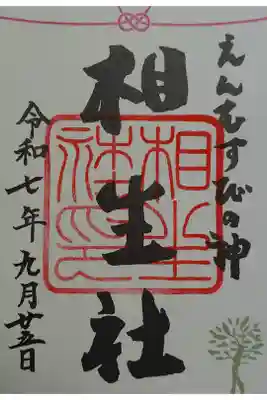 えんむすびの神
相生社
相生社印
令和七年九月廿五日